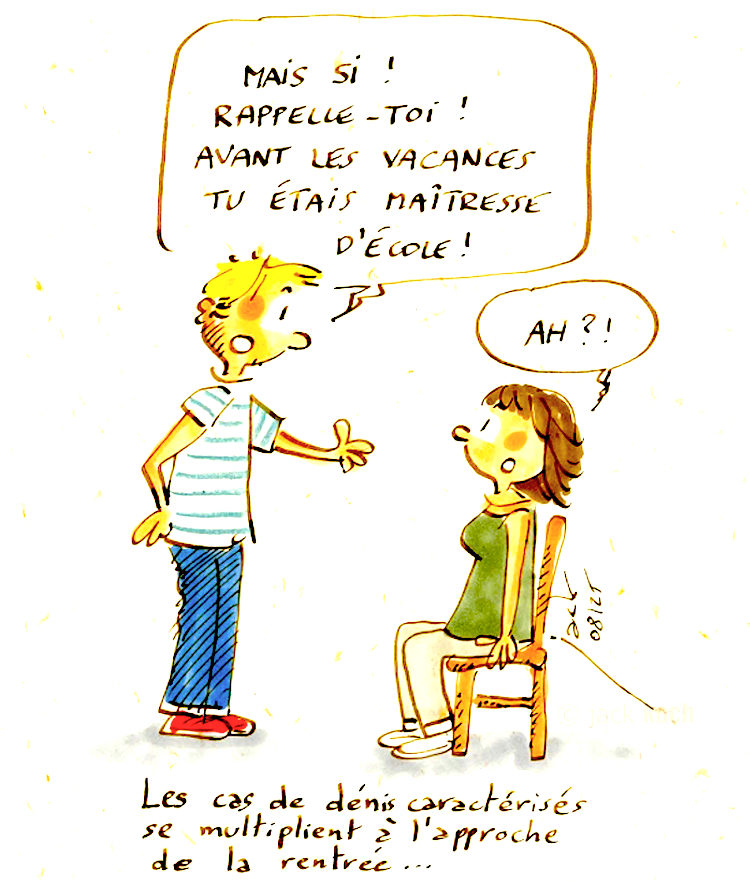 MAIS SI !
RAPPELLE-TOI !
AVANT LES VACANCES
TU ÉTAIS MAÎTRESSE
D'ÉCOLE !
AH ? !
Jack
08/25
Les cas de dénis caractérisés
se multiplient à l'approche
de la rentrée...